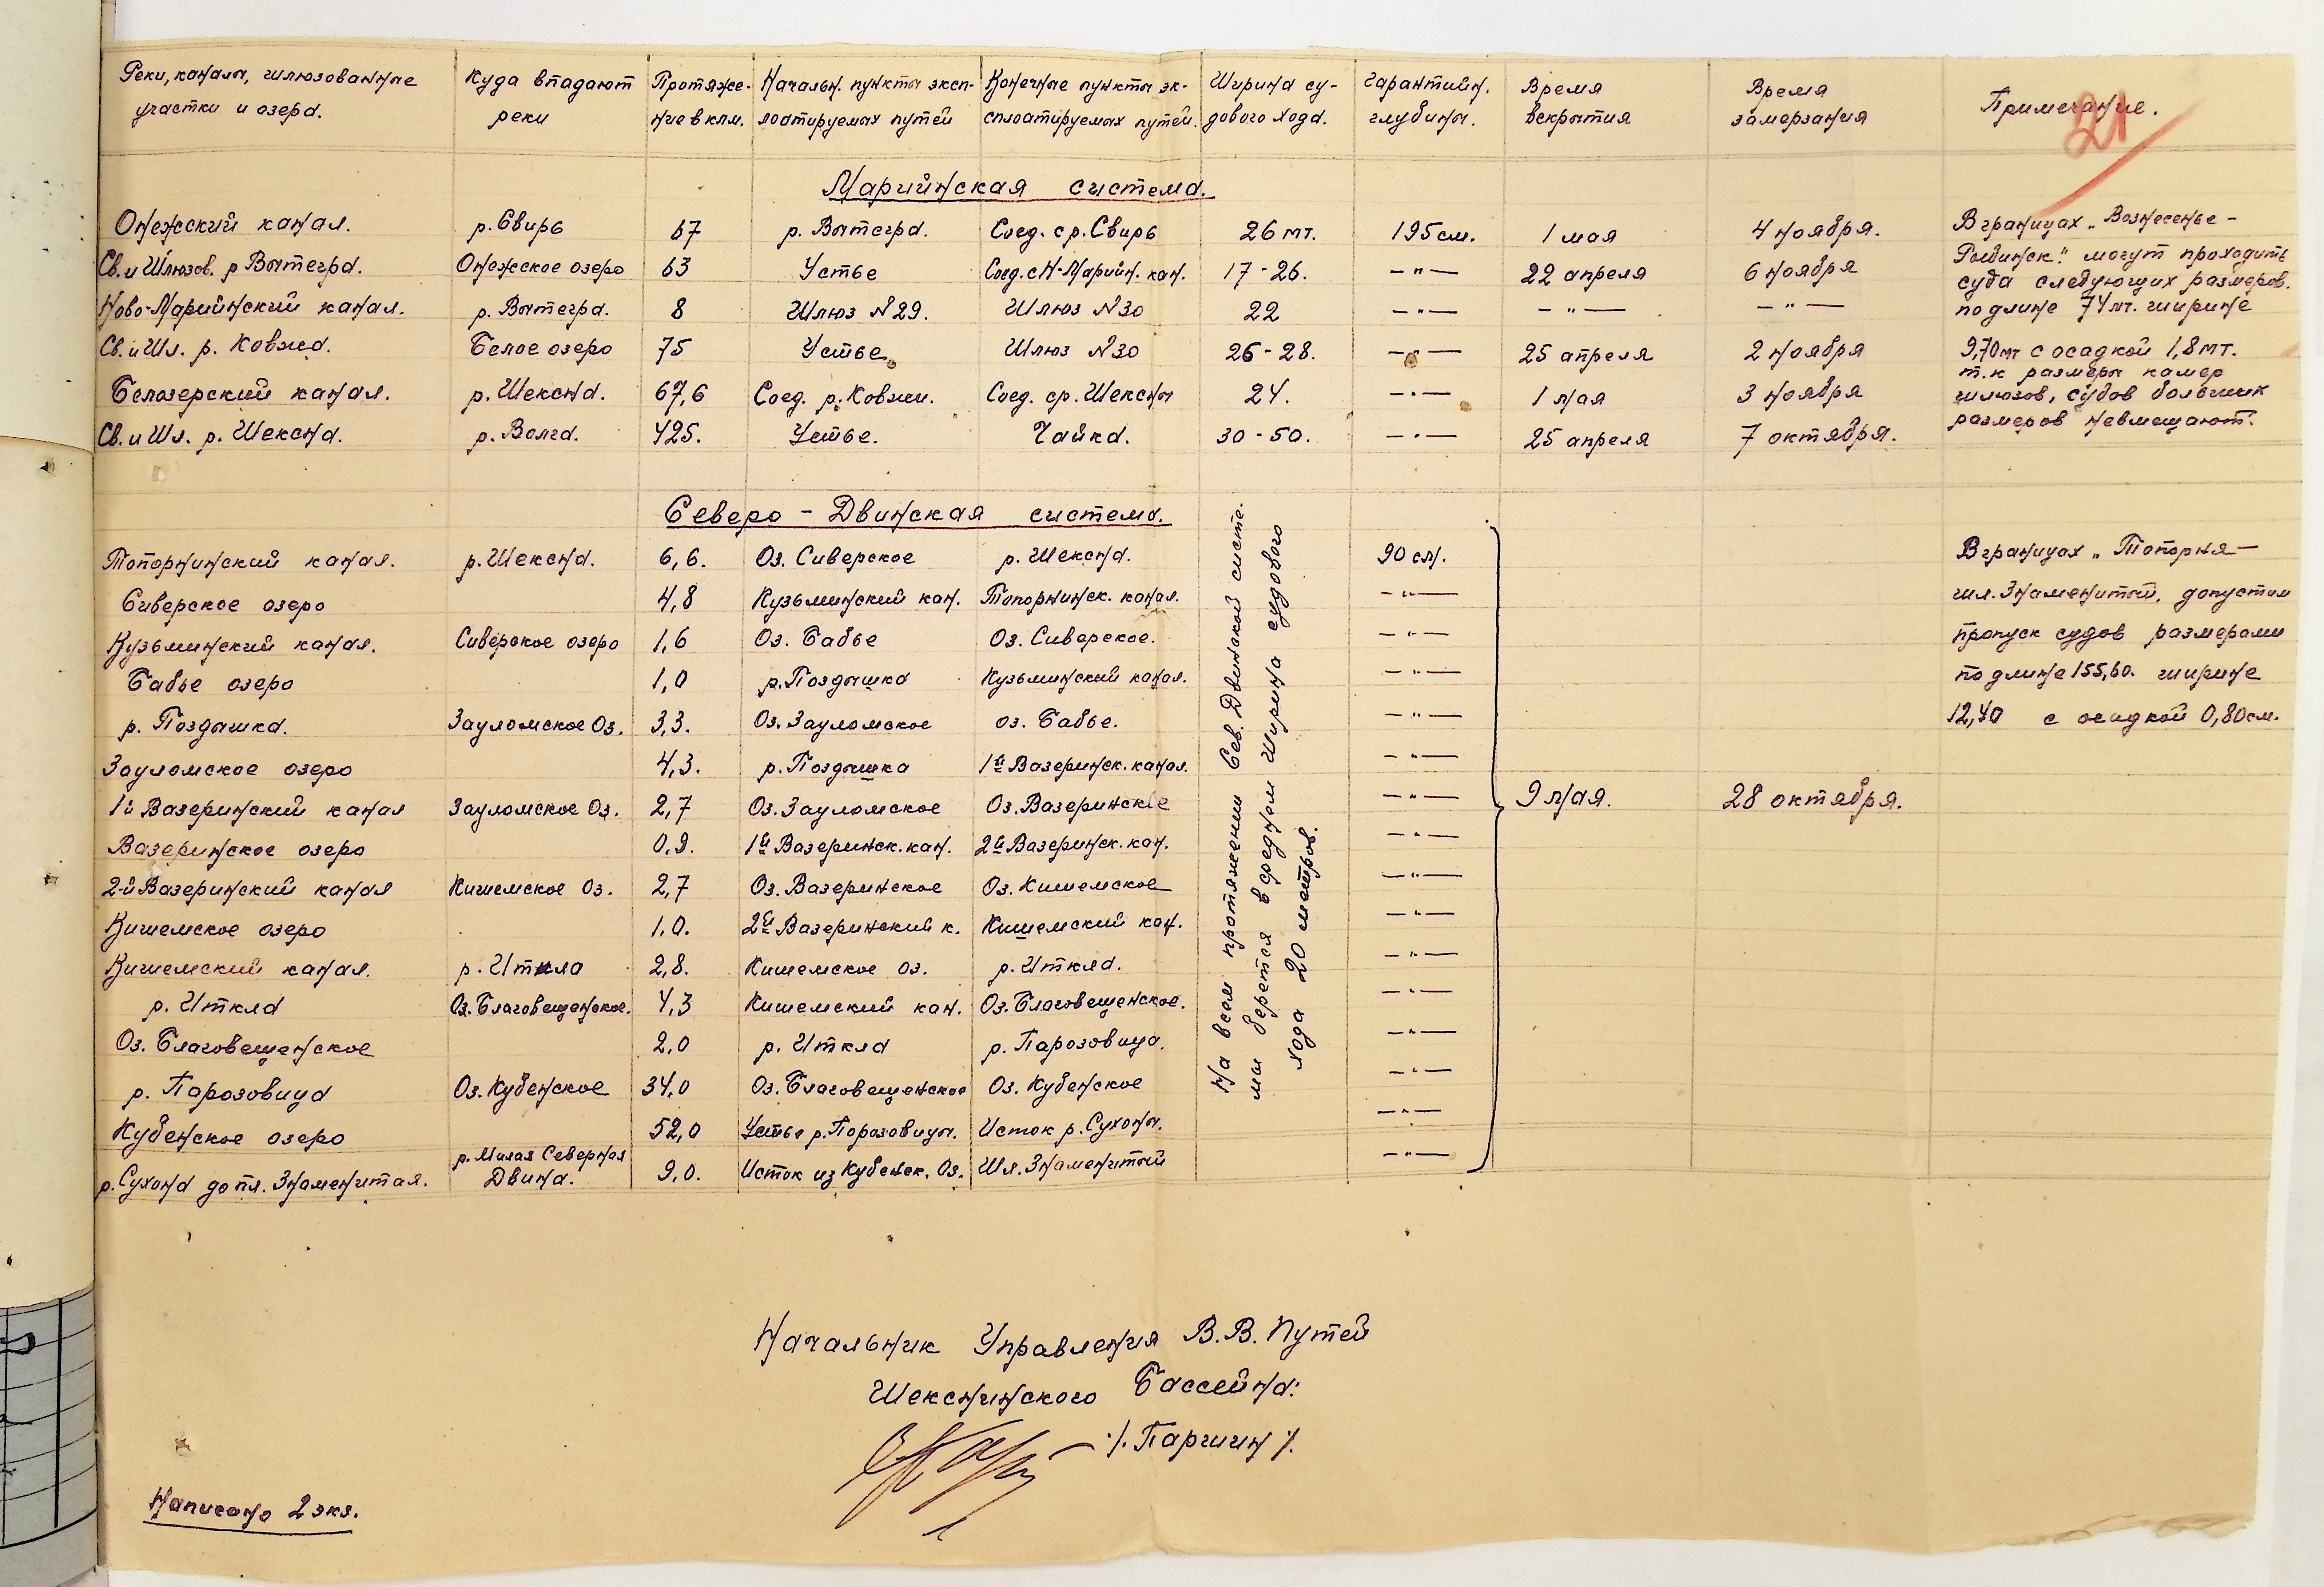 Реки, каналы, шлюзованные участки и озера. Куда впадают реки Протяже-ние в клм. Начальн. пункты эксп-лоатируемых путей Конечные пункты эк-сплоатируемых путей. Ширина су-дового хода. Гарантийн. глубины. Время вскрытия Время замерзания Примечание.
21
Марийнская система.
Онежский канал. р. Свирь 67 р. Вытегра. Соед. с р. Свирь 26 мт. 195 см. 1 мая 4 ноября.
Св. и Шлюзов. р Вытегра. Онежское озеро 63 Устье Соед. с Н-Марийн. кан. 17-26. —"— 22 апреля 6 ноября
Ново-Марийнский канал. р. Вытегра. 8 Шлюз №29. Шлюз №30 22 —"— —"— —"—
Св. и Шл. р. Ковжа. Белое озеро 75 Устье Шлюз №30 26-28. —"— 25 апреля 2 ноября
Белозерский канал. р. Шексна. 67,6 Соед. р. Ковжи. Соед. ср. Шексны 24. —"— 1 мая 3 ноября
Св. и Шл. р. Шексна. р. Волга. 425. Устье. Чайка. 30-50. —"— 25 апреля 7 октября.
В границах „Вознесенье -
Рыбинск." могут проходить
суда следующих размеров.
по длине 74 мт. ширине
9,70 мт с осадкой 1,8 мт.
т.к размеры камер
шлюзов, судов больших
размеров невмещают.
Северо - Двинская система.
Топорнинский канал. р. Шексна. 6,6. Оз. Сиверское р. Шексна. 90 см.
Сиверское озеро 4,8 Кузьминский кан. Топорнинск. канал. —"—
Кузьминский канал. Сиверское озеро 1,6 Оз. Бабье Оз. Сиверское. —"—
Бабье озеро 1,0 р. Поздышка Кузьминский канал. —"—
р. Поздышка. Зауломское Оз. 3,3. Оз. Зауломское оз. Бабье. —"—
Зауломское озеро 4,3. р. Поздышка 1й Вазеринск. канал. —"—
1й Вазеринский канал Зауломское Оз. 2,7 Оз. Зауломское Оз. Вазеринское —"— 9 мая. 28 октября.
Вазеринское озеро 0,9. 1й Вазеринск. кан. 2й Вазеринск. кан. —"—
2-й Вазеринский канал Кишемское Оз. 2,7 Оз. Вазеринское Оз. Кишемское —"—
Кишемское озеро 1,0. 2й Вазеринский к. Кишемский кан. —"—
Кишемский канал. р. Иткла 2,8. Кишемское оз. р. Иткла. —"—
р. Иткла Оз. Благовещенское. 4,3 Кишемский кан. Оз. Благовещенское. —"—
Оз. Благовещенское 2,0 р. Иткла р. Парозовица. —"—
р. Парозовица Оз. Кубенское 34,0 Оз. Благовещенское Оз. Кубенское —"—
Кубенское озеро 52,0 Устье р. Порозовицы. Исток р. Сухоны. —"—
р. Сухона до пл. Знаменитая. р. Малая Северная Двина. 9,0. Исток из Кубенск. Оз. Шл. Знаменитый —"—
На всем протяжении Сев. Двинской систе-
мы берется в среднем ширина судового
хода 20 метров.
В границах „Топорня—
шл. Знаменитый, допустим
пропуск судов размерами
по длине 155,60. ширине
12,40 с осадкой 0,80 см.
Начальник Управления В.В. Путей
Шекснинского Бассейна:
/. Паршин /.
Написано 2 экз.